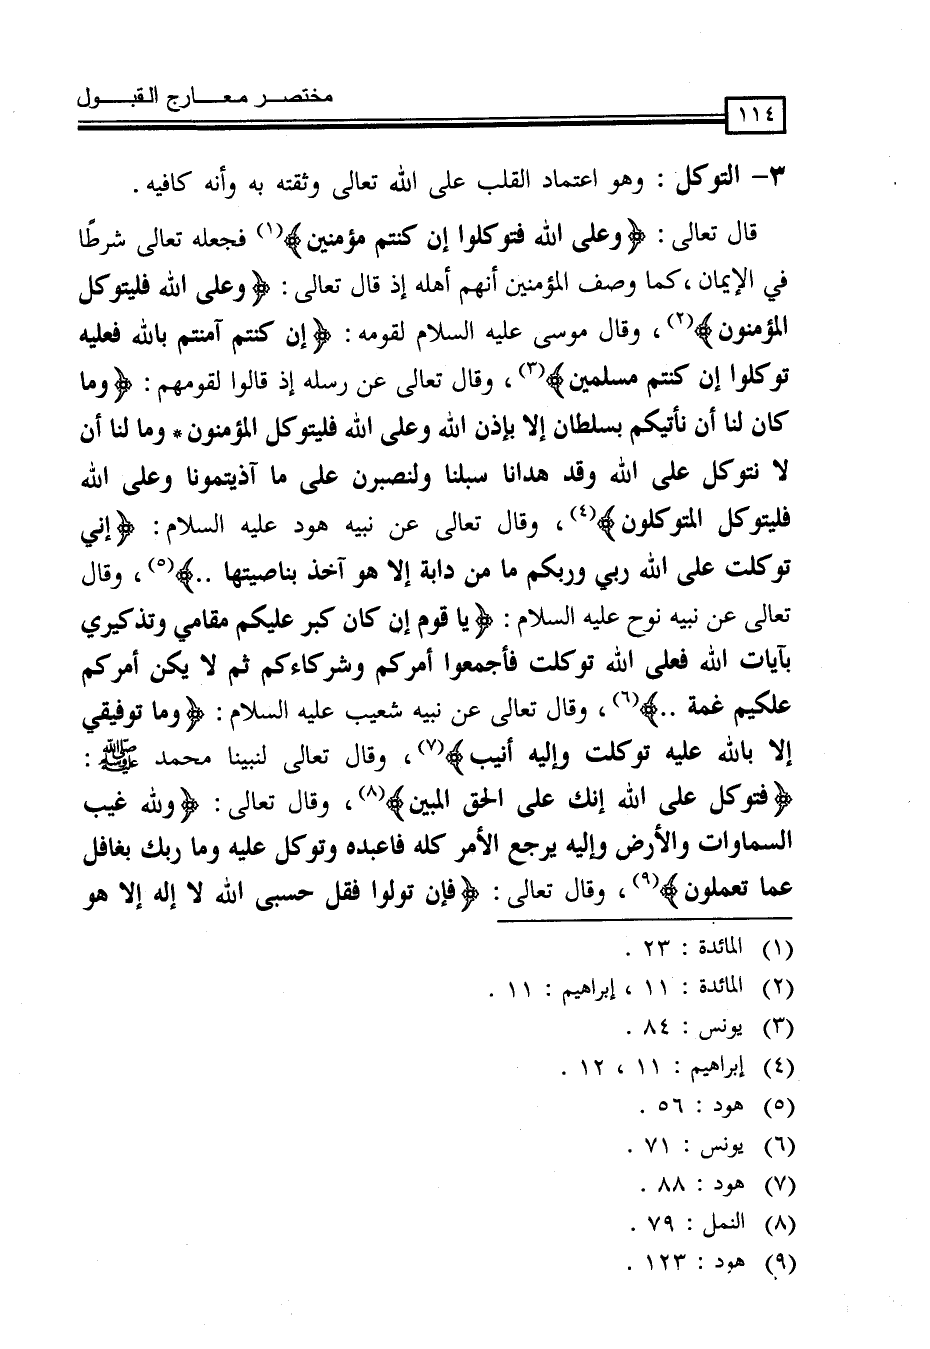 مختصر معارج القبول
١١٤
٣- التوكل : وهو اعتماد القلب على الله تعالى وثقته به وأنه كافيه .
قال تعالى : ﴿وعلى الله فتوكلوا إن كنتم مؤمنين﴾(١) فجعله تعالى شرطًا
في الإيمان ، كما وصف المؤمنين أنهم أهله إذ قال تعالى : ﴿وعلى الله فليتوكل
المؤمنون﴾(٢) ، وقال موسى عليه السلام لقومه : ﴿إن كنتم آمنتم بالله فعليه
توكلوا إن كنتم مسلمين﴾(٣) ، وقال تعالى عن رسله إذ قالوا لقومهم : ﴿وما
كان لنا أن نأتيكم بسلطان إلا بإذن الله وعلى الله فليتوكل المؤمنون * وما لنا أن
لا نتوكل على الله وقد هدانا سبلنا ولنصبرن على ما آذيتمونا وعلى الله
فليتوكل المتوكلون﴾(٤) ، وقال تعالى عن نبيه هود عليه السلام : ﴿إني
توكلت على الله ربي وربكم ما من دابة إلا هو آخذ بناصيتها ..﴾(٥) ، وقال
تعالى عن نبيه نوح عليه السلام : ﴿يا قوم إن كان كبر عليكم مقامي وتذكيري
بآيات الله فعلى الله توكلت فأجمعوا أمركم وشركاءكم ثم لا يكن أمركم
علكيم غمة ..﴾(٦) ، وقال تعالى عن نبيه شعيب عليه السلام : ﴿وما توفيقي
إلا بالله عليه توكلت وإليه أنيب﴾(٧) ، وقال تعالى لنبينا محمد ﷺ :
﴿فتوكل على الله إنك على الحق المبين﴾(٨) ، وقال تعالى : ﴿ولله غيب
السماوات والأرض وإليه يرجع الأمر كله فاعبده وتوكل عليه وما ربك بغافل
عما تعملون﴾(٩) ، وقال تعالى : ﴿فإن تولوا فقل حسبي الله لا إله إلا هو
(١) المائدة : ٢٣ .
(٢) المائدة : ١١ ، إبراهيم : ١١ .
(٣) يونس : ٨٤ .
(٤) إبراهيم : ١١ ، ١٢ .
(٥) هود : ٥٦ .
(٦) يونس : ٧١ .
(٧) هود : ٨٨ .
(٨) النمل : ٧٩ .
(٩) هود : ١٢٣ .